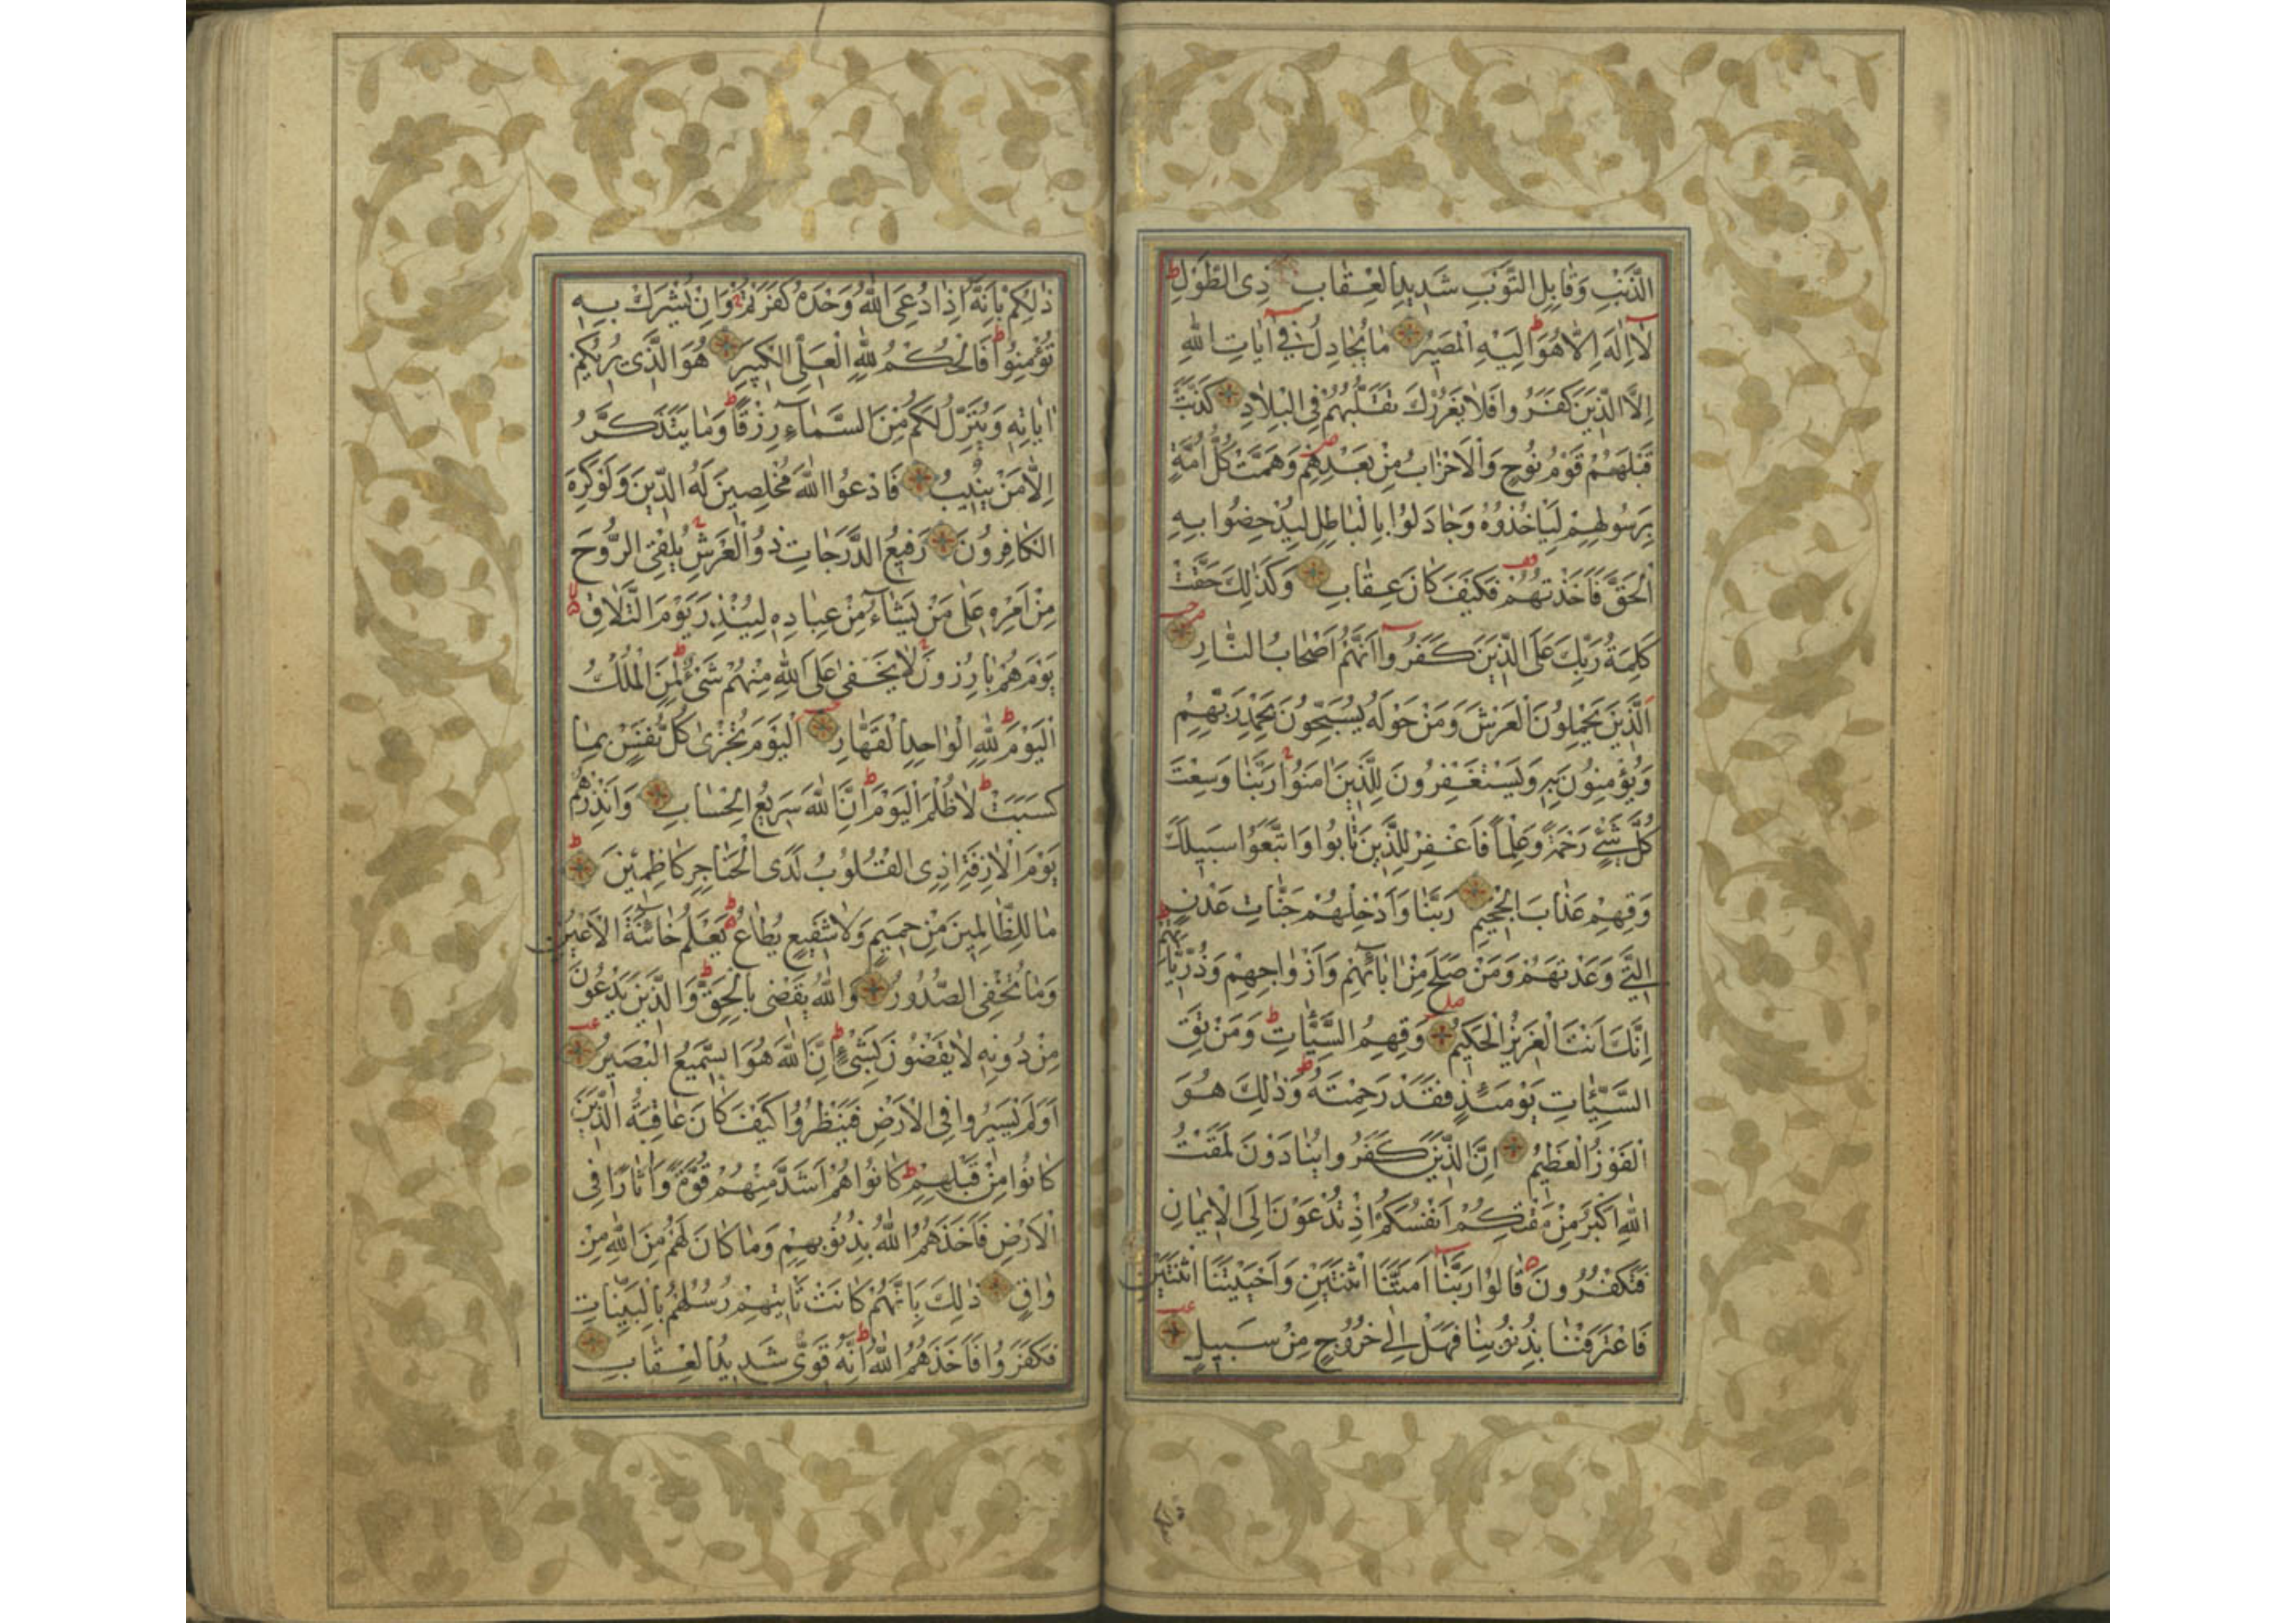 الذَّنْبِ وَقَابِلِ التَّوْبِ شَدِيدِ الْعِقَابِ ذِي الطَّوْلِ ط
لَا اِلٰهَ اِلَّا هُوَ ط اِلَيْهِ الْمَصِيرُ مَا يُجَادِلُ فِي اٰيَاتِ اللّٰهِ
اِلَّا الَّذِينَ كَفَرُوا فَلَا يَغْرُرْكَ تَقَلُّبُهُمْ فِي الْبِلَادِ كَذَّبَتْ
قَبْلَهُمْ قَوْمُ نُوحٍ وَالْاَحْزَابُ مِنْ بَعْدِهِمْ ص وَهَمَّتْ كُلُّ اُمَّةٍ
بِرَسُولِهِمْ لِيَاْخُذُوهُ وَجَادَلُوا بِالْبَاطِلِ لِيُدْحِضُوا بِهِ
الْحَقَّ فَاَخَذْتُهُمْ فَكَيْفَ كَانَ عِقَابِ وَكَذٰلِكَ حَقَّتْ
كَلِمَةُ رَبِّكَ عَلَى الَّذِينَ كَفَرُوا اَنَّهُمْ اَصْحَابُ النَّارِ
اَلَّذِينَ يَحْمِلُونَ الْعَرْشَ وَمَنْ حَوْلَهُ يُسَبِّحُونَ بِحَمْدِ رَبِّهِمْ
وَيُؤْمِنُونَ بِهِ وَيَسْتَغْفِرُونَ لِلَّذِينَ اٰمَنُوا رَبَّنَا وَسِعْتَ
كُلَّ شَيْءٍ رَحْمَةً وَعِلْمًا فَاغْفِرْ لِلَّذِينَ تَابُوا وَاتَّبَعُوا سَبِيلَكَ
وَقِهِمْ عَذَابَ الْجَحِيمِ رَبَّنَا وَاَدْخِلْهُمْ جَنَّاتِ عَدْنٍ
الَّتِي وَعَدْتَهُمْ وَمَنْ صَلَحَ مِنْ اٰبَائِهِمْ وَاَزْوَاجِهِمْ وَذُرِّيَّاتِهِمْ ط
اِنَّكَ اَنْتَ الْعَزِيزُ الْحَكِيمُ وَقِهِمُ السَّيِّئَاتِ ط وَمَنْ تَقِ
السَّيِّئَاتِ يَوْمَئِذٍ فَقَدْ رَحِمْتَهُ ط وَذٰلِكَ هُوَ
الْفَوْزُ الْعَظِيمُ اِنَّ الَّذِينَ كَفَرُوا يُنَادَوْنَ لَمَقْتُ
اللّٰهِ اَكْبَرُ مِنْ مَقْتِكُمْ اَنْفُسَكُمْ اِذْ تُدْعَوْنَ اِلَى الْاِيمَانِ
فَتَكْفُرُونَ قَالُوا رَبَّنَا اَمَتَّنَا اثْنَتَيْنِ وَاَحْيَيْتَنَا اثْنَتَيْنِ
فَاعْتَرَفْنَا بِذُنُوبِنَا فَهَلْ اِلٰى خُرُوجٍ مِنْ سَبِيلٍ
ذٰلِكُمْ بِاَنَّهُ اِذَا دُعِيَ اللّٰهُ وَحْدَهُ كَفَرْتُمْ وَاِنْ يُشْرَكْ بِهِ
تُؤْمِنُوا ط فَالْحُكْمُ لِلّٰهِ الْعَلِيِّ الْكَبِيرِ هُوَ الَّذِي يُرِيكُمْ
اٰيَاتِهِ وَيُنَزِّلُ لَكُمْ مِنَ السَّمَاءِ رِزْقًا ط وَمَا يَتَذَكَّرُ
اِلَّا مَنْ يُنِيبُ فَادْعُوا اللّٰهَ مُخْلِصِينَ لَهُ الدِّينَ وَلَوْ كَرِهَ
الْكَافِرُونَ رَفِيعُ الدَّرَجَاتِ ذُو الْعَرْشِ يُلْقِي الرُّوحَ
مِنْ اَمْرِهِ عَلٰى مَنْ يَشَاءُ مِنْ عِبَادِهِ لِيُنْذِرَ يَوْمَ التَّلَاقِ
يَوْمَ هُمْ بَارِزُونَ لَا يَخْفٰى عَلَى اللّٰهِ مِنْهُمْ شَيْءٌ ط لِمَنِ الْمُلْكُ
الْيَوْمَ ط لِلّٰهِ الْوَاحِدِ الْقَهَّارِ اَلْيَوْمَ تُجْزٰى كُلُّ نَفْسٍ بِمَا
كَسَبَتْ ط لَا ظُلْمَ الْيَوْمَ ط اِنَّ اللّٰهَ سَرِيعُ الْحِسَابِ وَاَنْذِرْهُمْ
يَوْمَ الْاٰزِفَةِ اِذِ الْقُلُوبُ لَدَى الْحَنَاجِرِ كَاظِمِينَ ط
مَا لِلظَّالِمِينَ مِنْ حَمِيمٍ وَلَا شَفِيعٍ يُطَاعُ ط يَعْلَمُ خَائِنَةَ الْاَعْيُنِ
وَمَا تُخْفِي الصُّدُورُ وَاللّٰهُ يَقْضِي بِالْحَقِّ ط وَالَّذِينَ يَدْعُونَ
مِنْ دُونِهِ لَا يَقْضُونَ بِشَيْءٍ ط اِنَّ اللّٰهَ هُوَ السَّمِيعُ الْبَصِيرُ
اَوَلَمْ يَسِيرُوا فِي الْاَرْضِ فَيَنْظُرُوا كَيْفَ كَانَ عَاقِبَةُ الَّذِينَ
كَانُوا مِنْ قَبْلِهِمْ ط كَانُوا هُمْ اَشَدَّ مِنْهُمْ قُوَّةً وَاٰثَارًا فِي
الْاَرْضِ فَاَخَذَهُمُ اللّٰهُ بِذُنُوبِهِمْ وَمَا كَانَ لَهُمْ مِنَ اللّٰهِ مِنْ
وَاقٍ ذٰلِكَ بِاَنَّهُمْ كَانَتْ تَاْتِيهِمْ رُسُلُهُمْ بِالْبَيِّنَاتِ
فَكَفَرُوا فَاَخَذَهُمُ اللّٰهُ ط اِنَّهُ قَوِيٌّ شَدِيدُ الْعِقَابِ